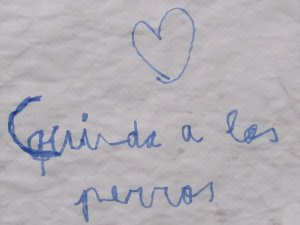 Cuida a los
perros